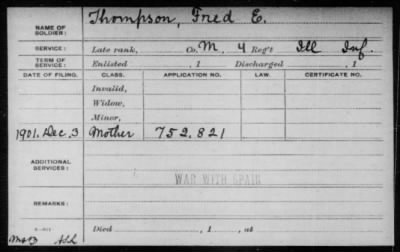 NAME OF SOLDIER: Thompson, Fred E.
SERVICE: Late rank, Co. M, 4 Reg't Ill Inf.
TERM OF SERVICE: Enlisted , 1 Discharged , 1
DATE OF FILING. CLASS. APPLICATION NO. LAW. CERTIFICATE NO.
Invalid,
Widow,
Minor,
1901. Dec. 3 Mother 752.821
ADDITIONAL SERVICES:
WAR WITH SPAIN
REMARKS:
Died , 1 , at